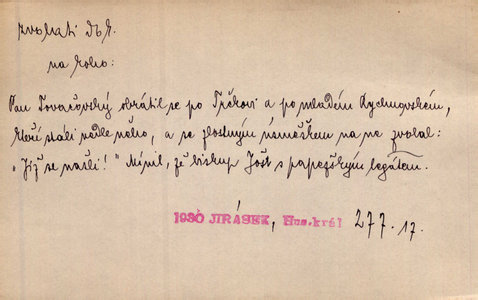 zvolati dk.
na koho:
Pan Tovačovský obrátil se po Trčkovi a po mladém Rychnovském,
kteří stáli vedle něho, a se zlostným úsměškem na ně zvolal:
"Již se našli!" Mínil, že biskup Jošt s papežským legátem.
1930 JIRÁSEK, Hus.král 277.17.